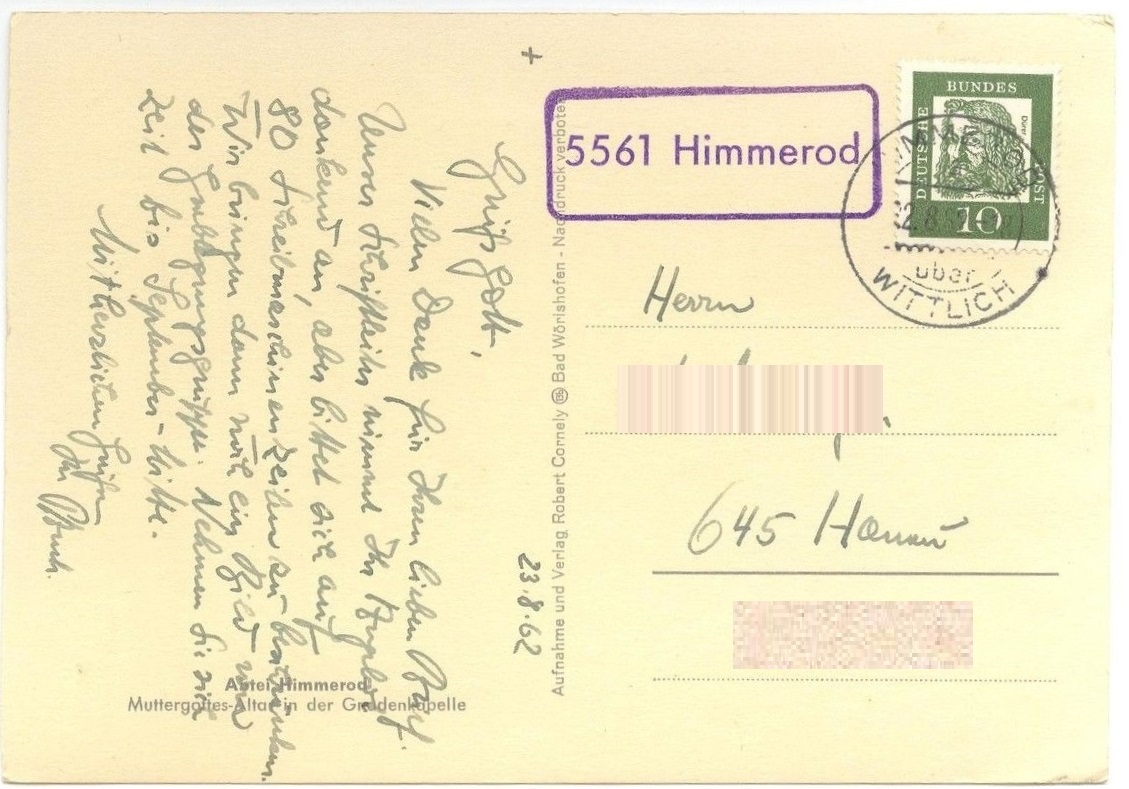 +
Grüß Gott,
Vielen Dank für Ihren lieben Brief.
Unser Schriftleiter nimmt Ihr Angebot
dankend an, aber bittet sich auf
80 Schreibmaschinenzeilen zu beschränken.
Wir bringen dann noch ein Bild von
der Nehmen Sie sich
Zeit bis September-Mitte.
Mit herzlichen Grüßen
Ihr
23.8.62
Abtei Himmerod
Muttergottes-Altar in der Gnadenkapelle
Aufnahme und Verlag Robert Cornely Bad Wörishofen - Nachdruck verboten
5561 Himmerod
DEUTSCHE BUNDESPOST
Dürer
10
HIMMEROD
über
WITTLICH
Herrn
645 Hanau